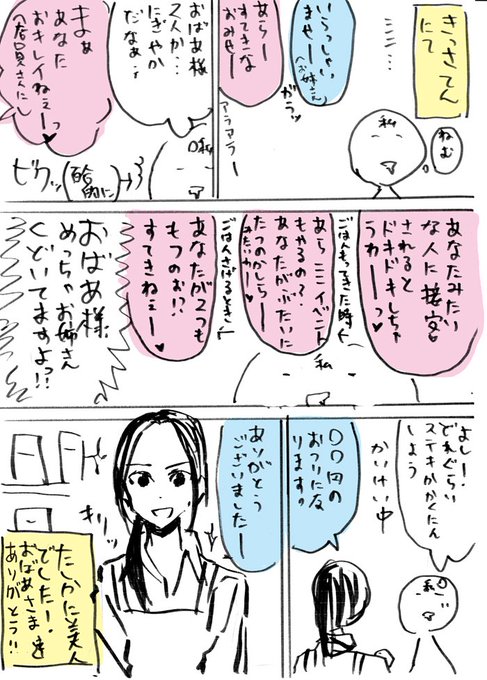 きっさてん
にて
私
ねむ
いらっしゃい
ませー
(お姉さん)
ガラッ
あらー
すてきな
おみせー
アラアラー
おばあ様
2人か…
にぎやか
だなぁ〜
私
まぁ
あなた
おキレイねぇーっ
(店員さんに)
ビクッ
あなたみたい
な人に接客
されると
ドキドキしちゃ
うわーーっ♥
私
(ごはんもってきた時)
あらここイベント
もやるの?
あなたがぶたいに
たつのかしらー
みたいわー
(ごはんさげるとき)
あなたが2つも
もつのぉ!?
すてきねぇー♥
おばあ様
めっちゃお姉さん
くどいてますよっ!?
よし!
どれぐらい
ステキかかくにん
しよう
私
かいけい中
〇〇円の
おつりにな
ります。
ありがとう
ございましたー
キリッ
たしかに美人
でした!
おばあさまを
ありがとう!!